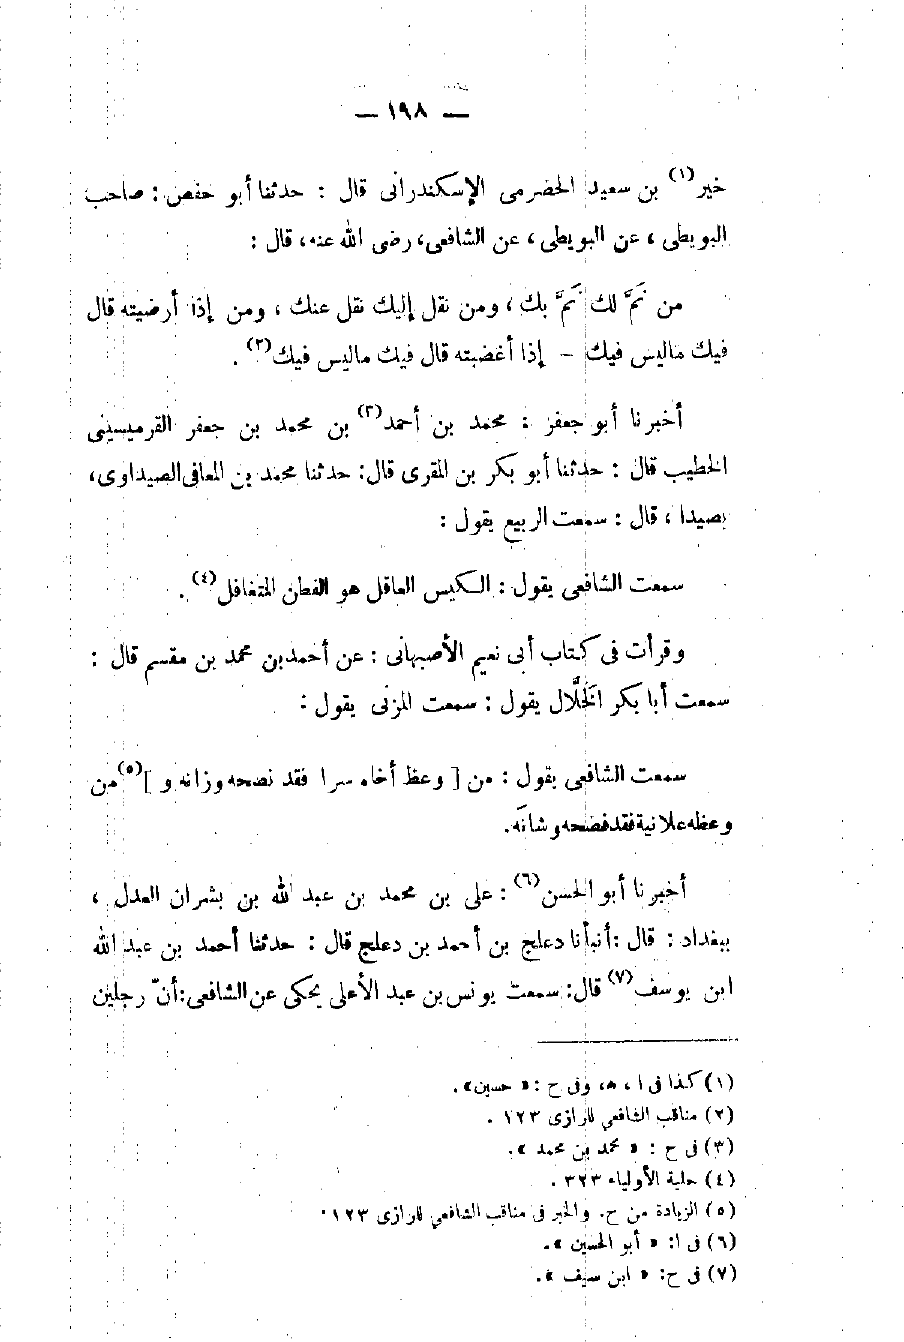 — ١٩٨ —
خير(١) بن سعيد الحضرمى الإسكندرانى قال : حدثنا أبو حفص : صاحب
البويطى ، عن البويطى ، عن الشافعى، رضى الله عنه، قال :
من نَمَّ لك نَمَّ بك ، ومن نقل إليك نقل عنك ، ومن إذا أرضيته قال
فيك ماليس فيك – إذا أغضبته قال فيك ماليس فيك(٢) .
أخبرنا أبو جعفر : محمد بن أحمد(٣) بن محمد بن جعفر القرميسينى
الخطيب قال : حدثنا أبو بكر بن المقرى قال: حدثنا محمد بن المعافى الصيداوى،
بصيدا ، قال : سمعت الربيع يقول :
سمعت الشافعى يقول : الكيس العاقل هو الفطن المتغافل(٤) .
وقرأت فى كتاب أبى نعيم الأصبهانى : عن أحمد بن محمد بن مقسم قال :
سمعت أبا بكر الخَلَّال يقول : سمعت المزنى يقول :
سمعت الشافعى يقول : من [ وعظ أخاه سرا فقد نصحه وزانه و ](٥) من
وعظه علانية فقد فضحه وشانَه.
أخبرنا أبو الحسن(٦) : على بن محمد بن عبد الله بن بشران العدل ،
ببغداد : قال : أنبأنا دعلج بن أحمد بن دعلج قال : حدثنا أحمد بن عبد الله
ابن يوسف(٧) قال: سمعت يونس بن عبد الأعلى يحكى عن الشافعى: أنّ رجلين
(١) كذا فى ا ، ه، وفى ح : « حسين».
(٢) مناقب الشافعي للرازى ١٢٣ .
(٣) فى ح : « محمد بن محمد ».
(٤) حلية الأولياء ٣٢٣ .
(٥) الزيادة من ح. والخبر فى مناقب الشافعي للرازى ١٢٣.
(٦) فى ا: « أبو الحسين ».
(٧) فى ح: « ابن سيف ».